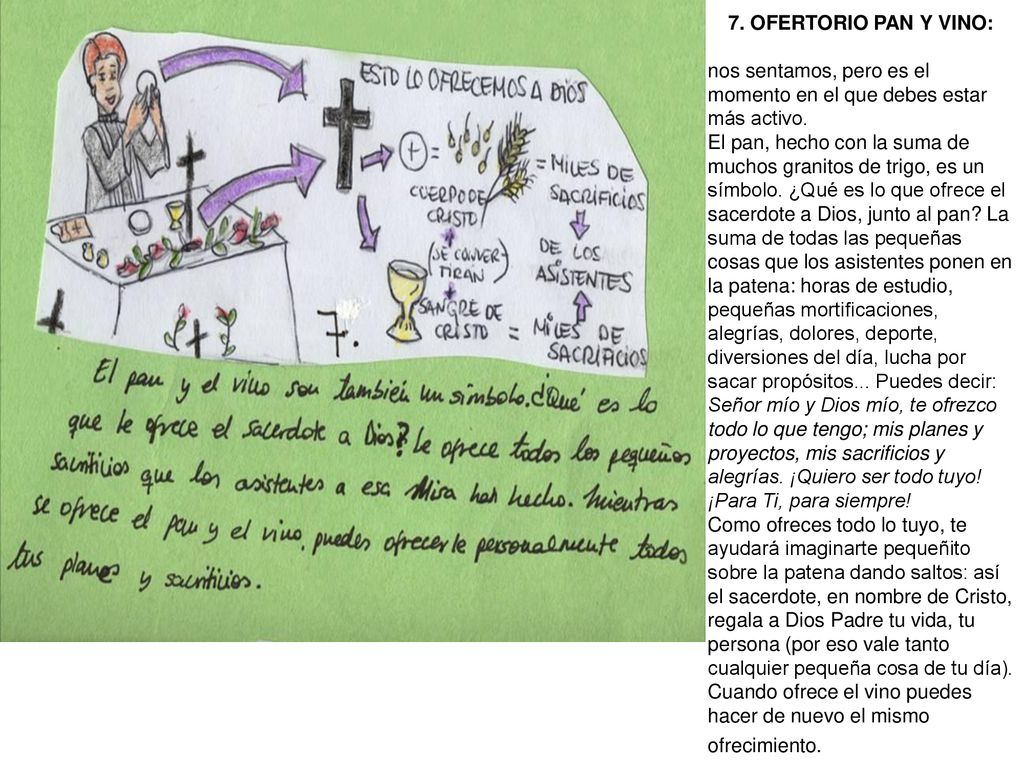 ESTO LO OFRECEMOS A DIOS
+ =
= MILES DE
SACRIFICIOS
CUERPO DE
CRISTO
(SE CONVER-
TIRÁN)
DE LOS
ASISTENTES
SANGRE DE
CRISTO
= MILES DE
SACRIFICIOS
7.
El pan y el vino son también un símbolo. ¿Qué es lo
que le ofrece el sacerdote a Dios? Le ofrece todos los pequeños
sacrificios que los asistentes a esa Misa han hecho. Mientras
se ofrece el pan y el vino, puedes ofrecerle personalmente todos
tus planes y sacrificios.
7. OFERTORIO PAN Y VINO:
nos sentamos, pero es el
momento en el que debes estar
más activo.
El pan, hecho con la suma de
muchos granitos de trigo, es un
símbolo. ¿Qué es lo que ofrece el
sacerdote a Dios, junto al pan? La
suma de todas las pequeñas
cosas que los asistentes ponen en
la patena: horas de estudio,
pequeñas mortificaciones,
alegrías, dolores, deporte,
diversiones del día, lucha por
sacar propósitos... Puedes decir:
Señor mío y Dios mío, te ofrezco
todo lo que tengo; mis planes y
proyectos, mis sacrificios y
alegrías. ¡Quiero ser todo tuyo!
¡Para Ti, para siempre!
Como ofreces todo lo tuyo, te
ayudará imaginarte pequeñito
sobre la patena dando saltos: así
el sacerdote, en nombre de Cristo,
regala a Dios Padre tu vida, tu
persona (por eso vale tanto
cualquier pequeña cosa de tu día).
Cuando ofrece el vino puedes
hacer de nuevo el mismo
ofrecimiento.